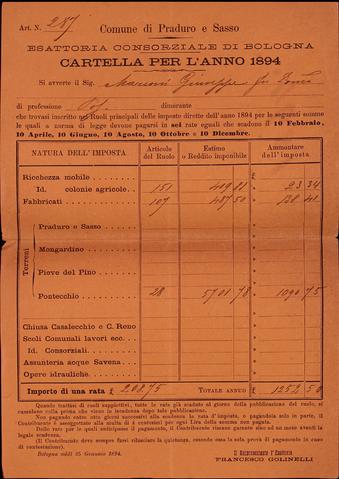 Art. N. 287
Comune di Praduro e Sasso
ESATTORIA CONSORZIALE DI BOLOGNA
CARTELLA PER L'ANNO 1894
Si avverte il Sig. Marconi Giuseppe fu
di professione Pos. dimorante
che trovasi inscritto nei Ruoli principali delle imposte dirette dell'anno 1894 per le seguenti somme
le quali a norma di legge devono pagarsi in sei rate eguali che scadono il 10 Febbraio,
10 Aprile, 10 Giugno, 10 Agosto, 10 Ottobre e 10 Dicembre.
NATURA DELL'IMPOSTA Articolo del Ruolo Estimo o Reddito imponibile Ammontare dell'imposta
Ricchezza mobile
Id. colonie agricole 151 419 81 23 34
Fabbricati 107 487 50 138 41
Terreni
Praduro e Sasso
Mongardino
Pieve del Pino
Pontecchio 28 5701 78 1090 75
Chiusa Casalecchio e C. Reno
Scoli Comunali lavori ecc.
Id. Consorziali
Assunteria acque Savena
Opere idrauliche
Importo di una rata £ 208.75 TOTALE ANNUO £ 1252 50
Quando trattasi di ruoli suppletivi, tutte le rate già scadute al giorno della pubblicazione del ruolo, si
cumulano colla prima che viene in iscadenza dopo tale pubblicazione.
Non pagando entro otto giorni successivi alla scadenza le rate d'imposta, o pagandola solo in parte, il
Contribuente è assoggettato alla multa di 4 centesimi per ogni Lira della somma non pagata.
Dalle rate per le quali anticipano il pagamento, il Contribuente riceverà un corrispondente ad un mese avanti la
legale scadenza.
(Il Contribuente deve sempre farsi rilasciare la quietanza, essendo essa la sola prova di pagamento in caso
di contestazione).
Bologna addì 25 Gennaio 1894.
Il Rappresentante l'Esattoria
FRANCESCO GOLINELLI